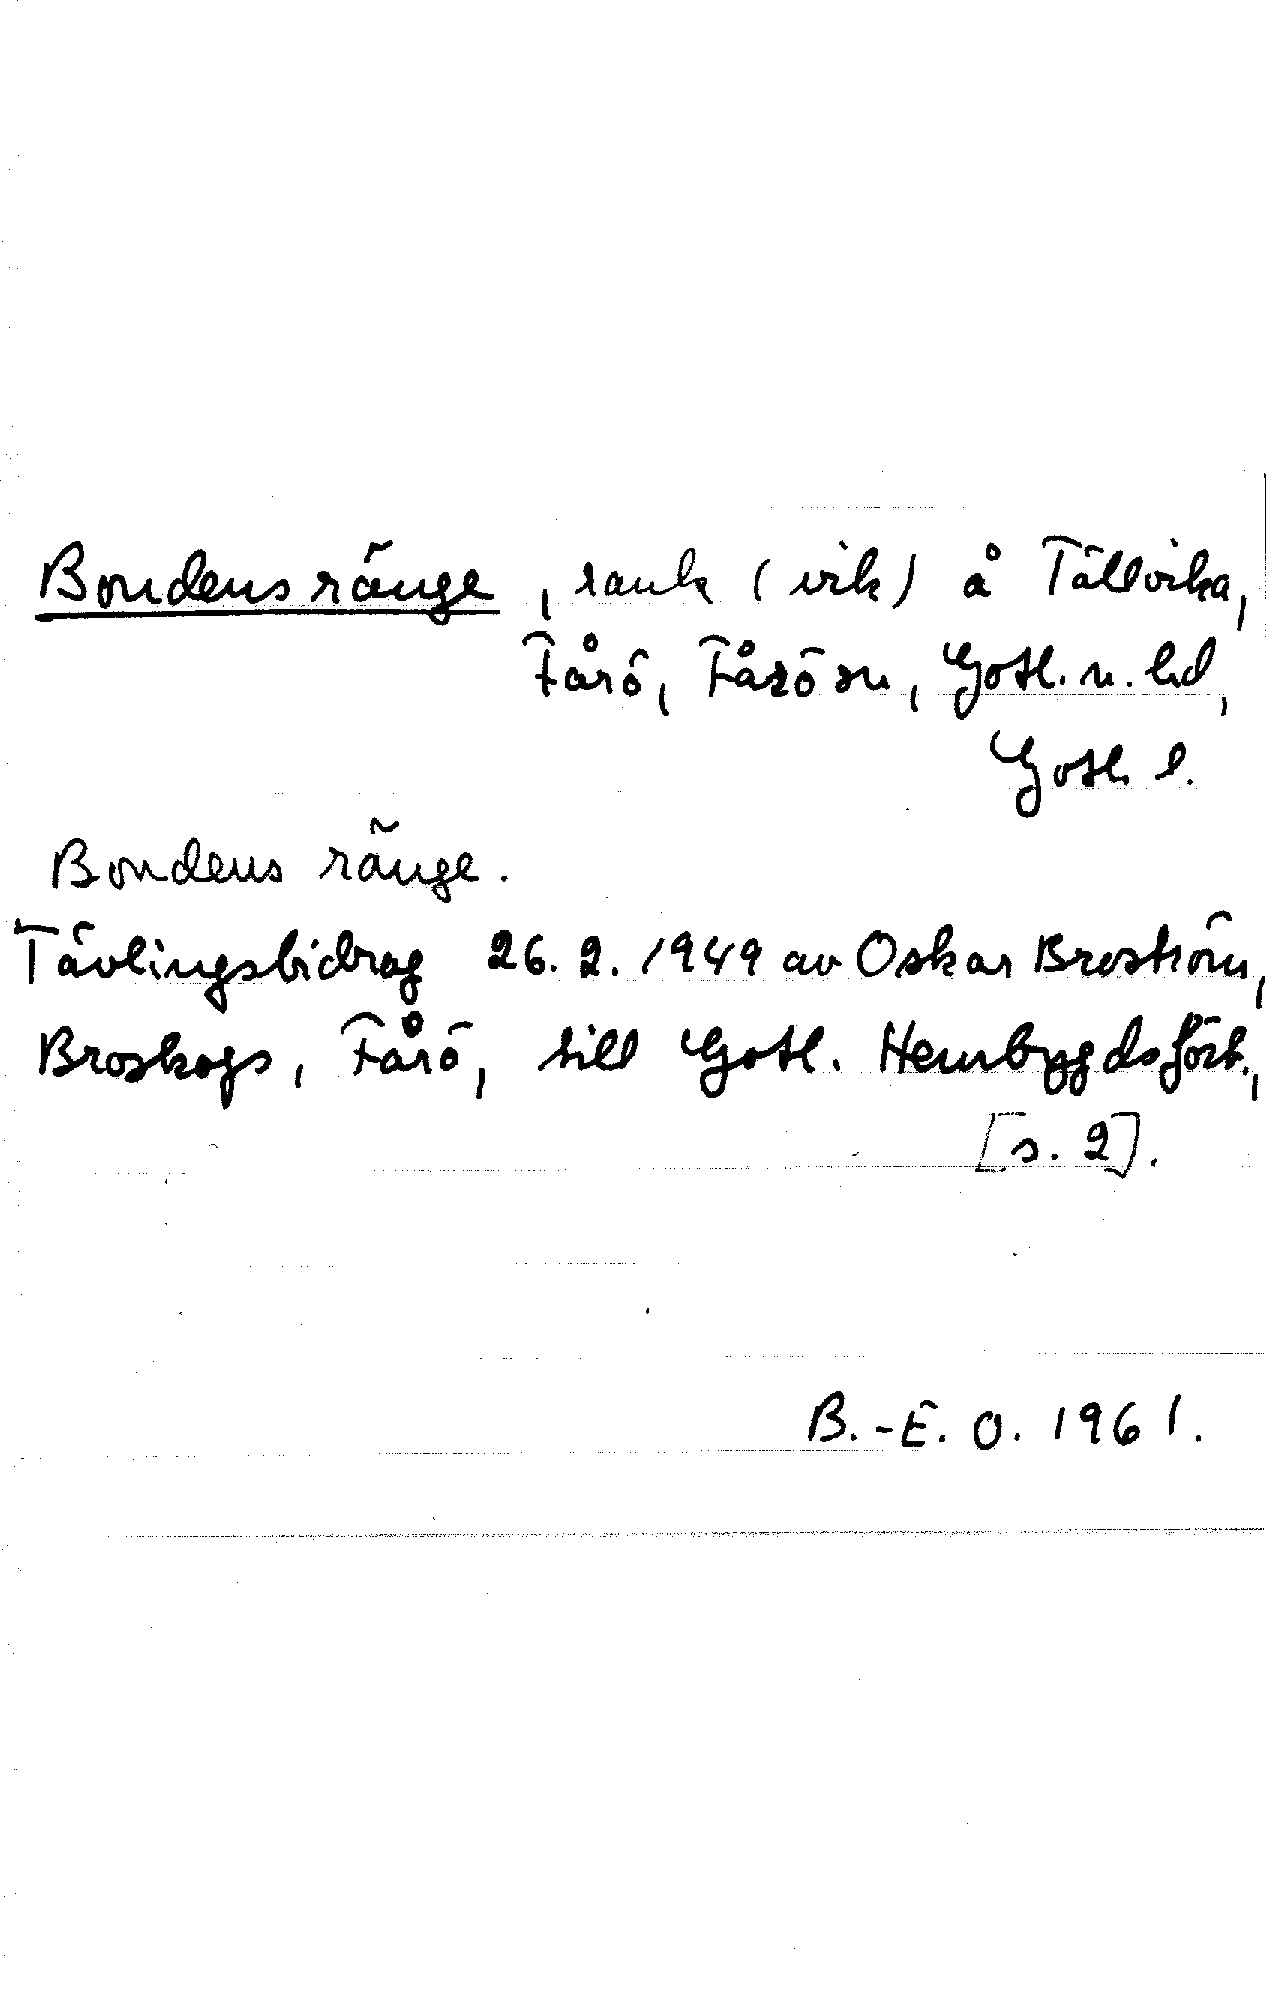 Bondens ränge, rauk (vik) å Tällvika,
Fårö, Fårö sn, Gotl. n. hd,
Gotl. l.
Bondens ränge.
Tävlingsbidrag 26. 2. 1949 av Oskar Broström,
Broskogs, Fårö, till Gotl. Hembygdsförb.,
[s. 2].
B.-E. O. 1961.